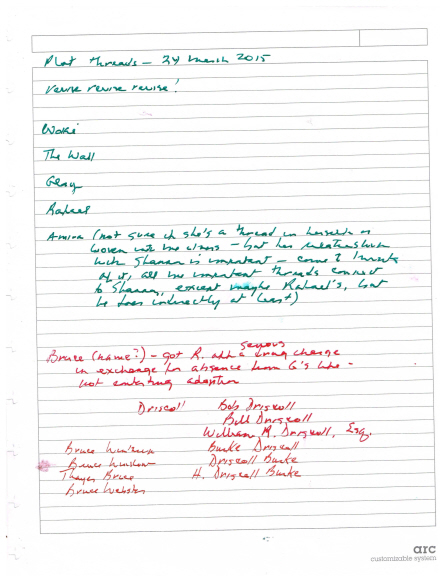 Plot threads – 24 March 2015
revise revise revise!
Woke
The Wall
Geray
Rafael
Amira (not sure if she's a thread in herself or
woven into the others – but her relationship
with Shannon is important – come to think
of it, all the important threads connect
to Shannon, except maybe Rafael's, but
he does indirectly at least)
serious
Bruce (name?) – got R. off a drug charge
in exchange for absence from G's life –
not contesting adoption
Driscoll Bob Driscoll
Bill Driscoll
William R. Driscoll, Esq.
Bruce Burke Driscoll
Bruce Winslow Driscoll Burke
Thayer Bruce H. Driscoll Burke
Bruce Webster
arc
customizable system